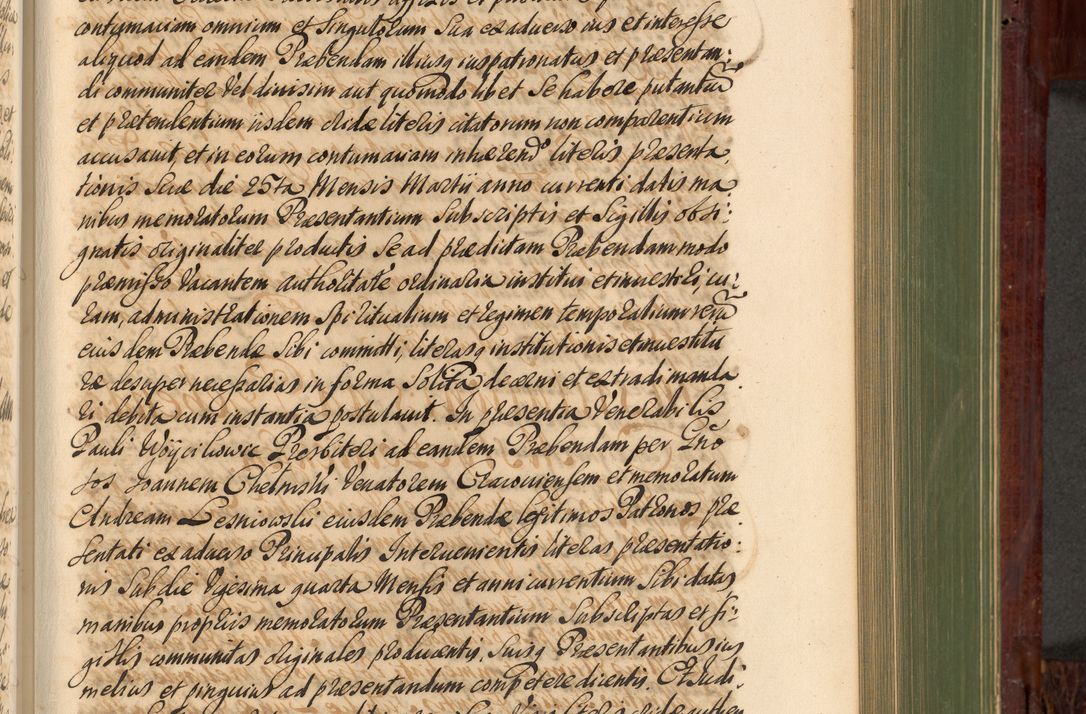 contumaciam omnium et Singulorum Sua ex adverso ius et interesse
aliquod ad eandem Præbendam illiusq iuspatronatus et præsentan:
di communiter Vel divisim aut quomodolibet Se habere putantiũ
et prætendentium iisdem eridæ literis citatorum non comparentium
accusavit, et in eorum contumaciam inhærendo literis præsenta,
tionis Suæ die 25ta Mensis Martii anno currenti datis ma,
nibus memoratorum Præsentantium Subscriptis et Sigillis obsi:
gnatis originaliter productis Se ad prædictam Præbendam modo
præmisso Vacantem authoritate ordinaria institui et investiri, cu:
ram, administrationem Spiritualium et regimen temporalium rerũ
eiusdem Præbendæ Sibi committi, literasq institutionis et investitu
ræ desuper necessarias in forma Solita decerni et extradi manda
ri debita cum instantia postulavit. In præsentia Venerabilis
Pauli Woycikowic Presbiteri ad eandem Præbendam per Gño
sos Joannem Chelmski Venatorem Cracoviensem et memoratum
Andream Lesniowski eiusdem Præbendæ legitimos Patronos præ
sentati ex adverso Principalis Intervenientis literas præsentatio:
nis Sub die Vigesima quarta Mensis et anni currentium Sibi datas
manibus propriis memoratorum Præsentantium Subscriptas et si:
gillis communitas originales producentis, Suisq Præsentantibus ius
melius et pinguius ad præsentandum competere dicentis. Et Iudi: